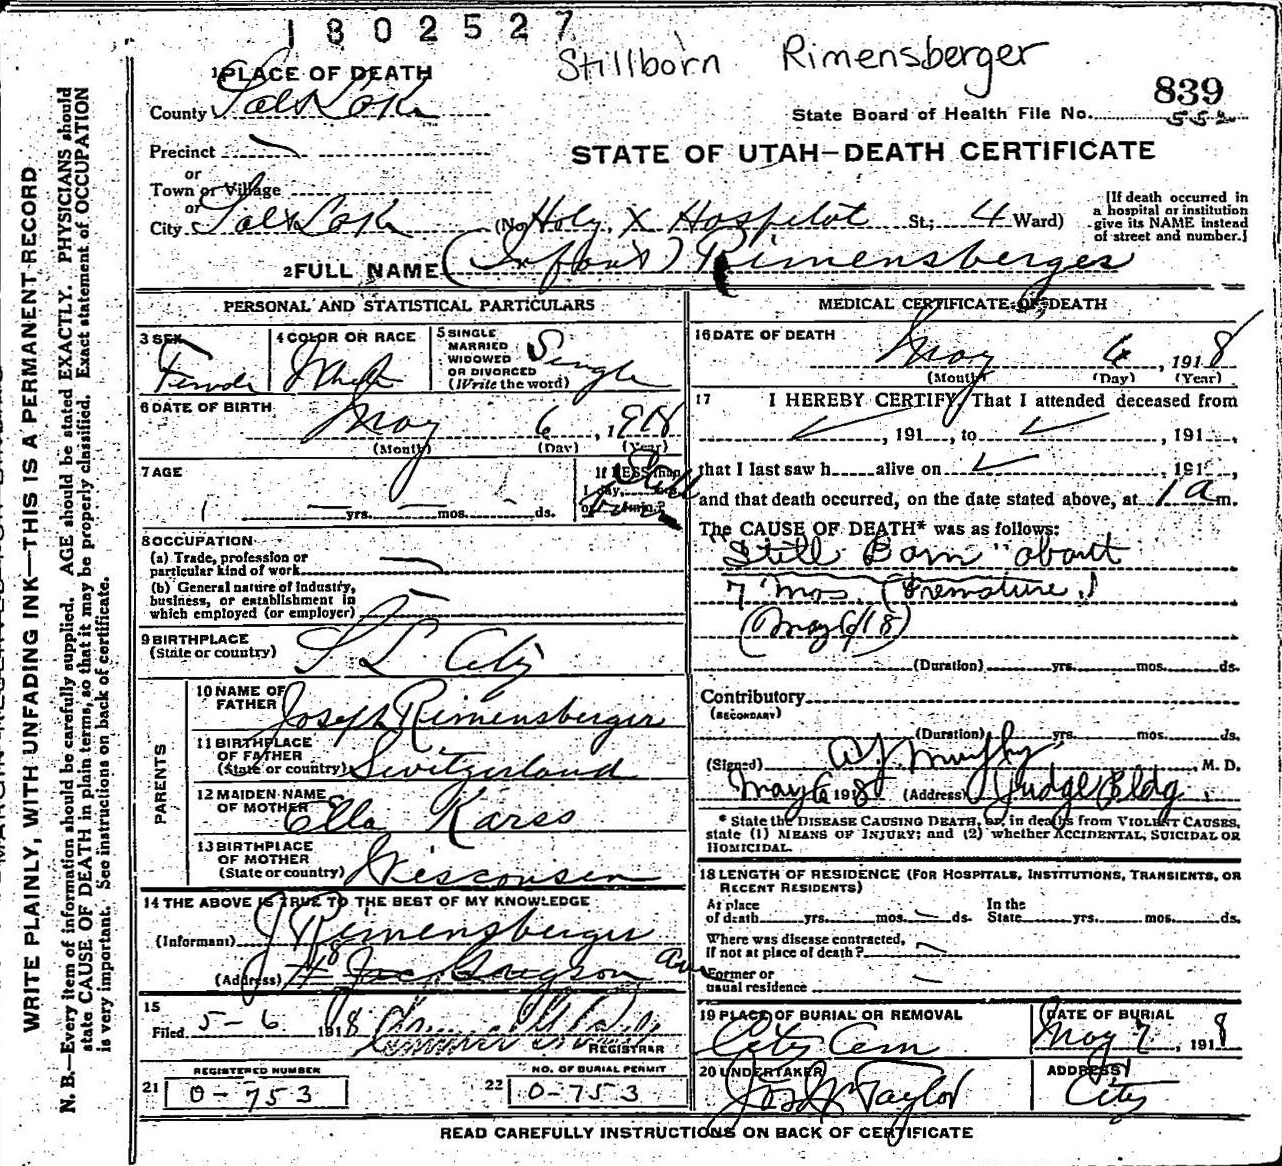 1802527
Stillborn Rimensberger
839
State Board of Health File No. 552
STATE OF UTAH—DEATH CERTIFICATE
1 PLACE OF DEATH
County Salt Lake
Precinct
or
Town or Village
or
City Salt Lake (No. Holy X Hospital St; 4 Ward)
[If death occurred in
a hospital or institution
give its NAME instead
of street and number.]
2 FULL NAME (Infant) Rimensberger
PERSONAL AND STATISTICAL PARTICULARS
3 SEX Female
4 COLOR OR RACE White
5 SINGLE
MARRIED
WIDOWED
OR DIVORCED
(Write the word) Single
6 DATE OF BIRTH May 6, 1918
(Month) (Day) (Year)
7 AGE
yrs. mos. ds.
If LESS than
1 day, Still
born
8 OCCUPATION
(a) Trade, profession or
particular kind of work
(b) General nature of industry,
business, or establishment in
which employed (or employer)
9 BIRTHPLACE
(State or country) S L City
PARENTS
10 NAME OF
FATHER Joseph Rimensberger
11 BIRTHPLACE
OF FATHER
(State or country) Switzerland
12 MAIDEN NAME
OF MOTHER Ella Karss
13 BIRTHPLACE
OF MOTHER
(State or country) Wisconsin
14 THE ABOVE IS TRUE TO THE BEST OF MY KNOWLEDGE
(Informant) J Rimensberger
(Address) Ave
15
Filed 5-6 1918
REGISTRAR
REGISTERED NUMBER
21 0-753
NO. OF BURIAL PERMIT
22 0-753
MEDICAL CERTIFICATE OF DEATH
16 DATE OF DEATH
May 6, 1918
(Month) (Day) (Year)
17 I HEREBY CERTIFY, That I attended deceased from
, 191 , to , 191 ,
that I last saw h alive on , 191 ,
and that death occurred, on the date stated above, at 1 a m.
The CAUSE OF DEATH* was as follows:
"Still Born" about
7 mos. (Premature.)
(May 6/18)
(Duration) yrs. mos. ds.
Contributory
(SECONDARY)
(Duration) yrs. mos. ds.
(Signed) A J. Murphy, M. D.
May 6 1918 (Address) Judge Bldg.
* State the DISEASE CAUSING DEATH, or, in deaths from VIOLENT CAUSES,
state (1) MEANS OF INJURY; and (2) whether ACCIDENTAL, SUICIDAL OR
HOMICIDAL.
18 LENGTH OF RESIDENCE (FOR HOSPITALS, INSTITUTIONS, TRANSIENTS, OR
RECENT RESIDENTS)
At place
of death yrs. mos. ds.
In the
State yrs. mos. ds.
Where was disease contracted,
if not at place of death?
Former or
usual residence
19 PLACE OF BURIAL OR REMOVAL
City Cem
DATE OF BURIAL
May 7, 1918
20 UNDERTAKER
Jos Wm Taylor
ADDRESS
City
READ CAREFULLY INSTRUCTIONS ON BACK OF CERTIFICATE
WRITE PLAINLY, WITH UNFADING INK—THIS IS A PERMANENT RECORD
N. B.—Every item of information should be carefully supplied. AGE should be stated EXACTLY. PHYSICIANS should
state CAUSE OF DEATH in plain terms, so that it may be properly classified. Exact statement of OCCUPATION
is very important. See instructions on back of certificate.